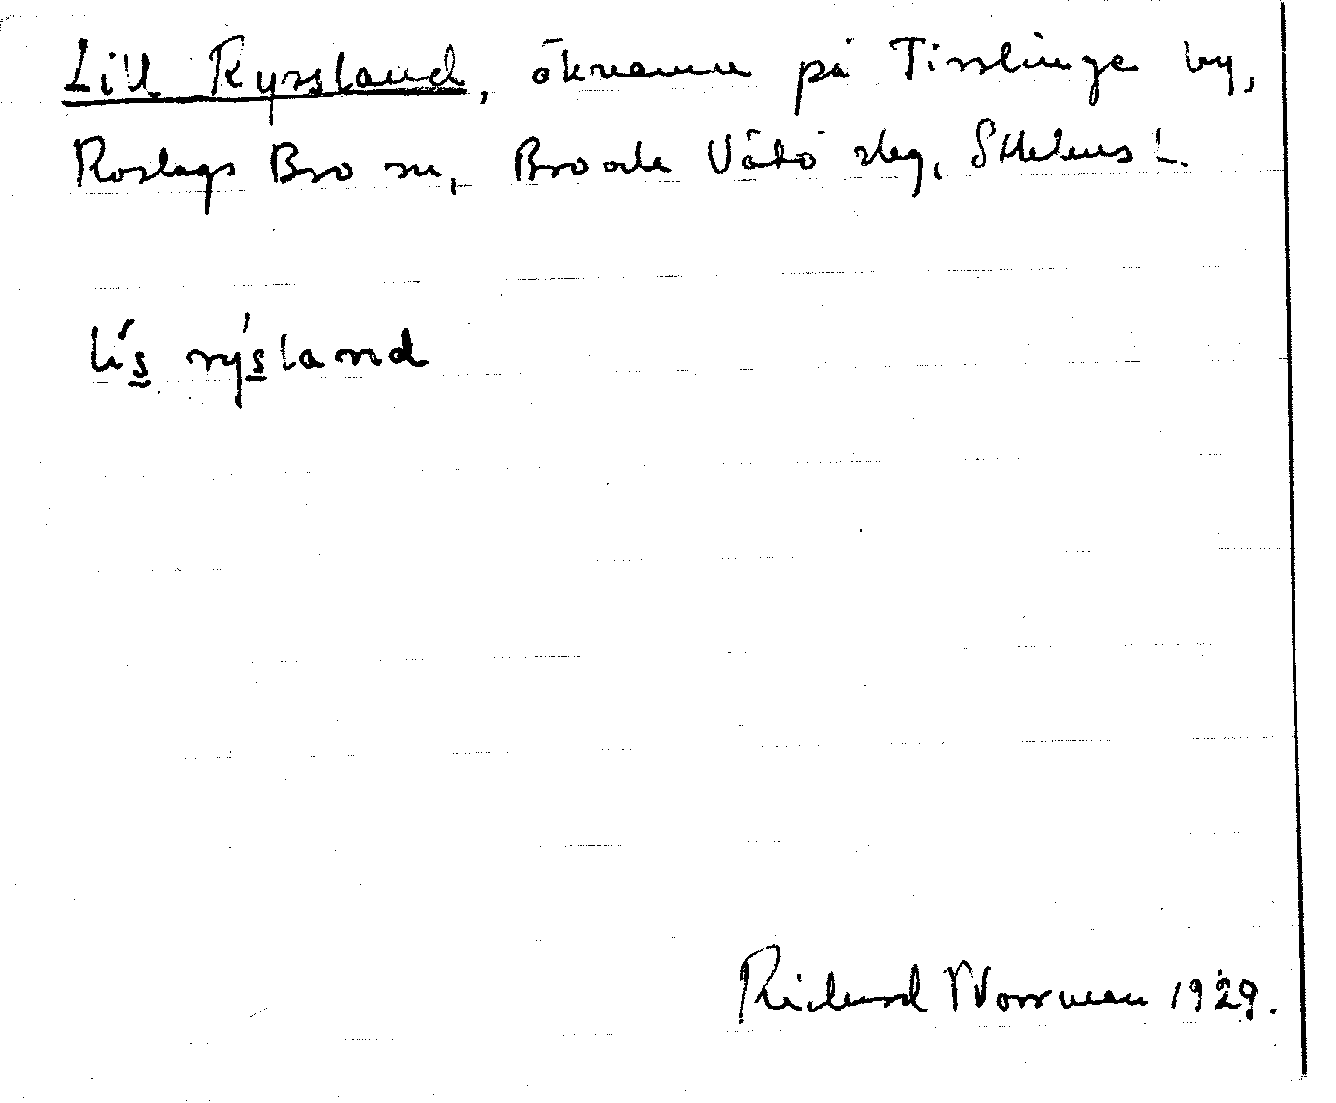 Lill Ryssland, öknamn på Tisslinge by,
Roslags Bro sn, Bro och Vätö skg, Sthlms L.
rýsland
Richard Norrman 1929.